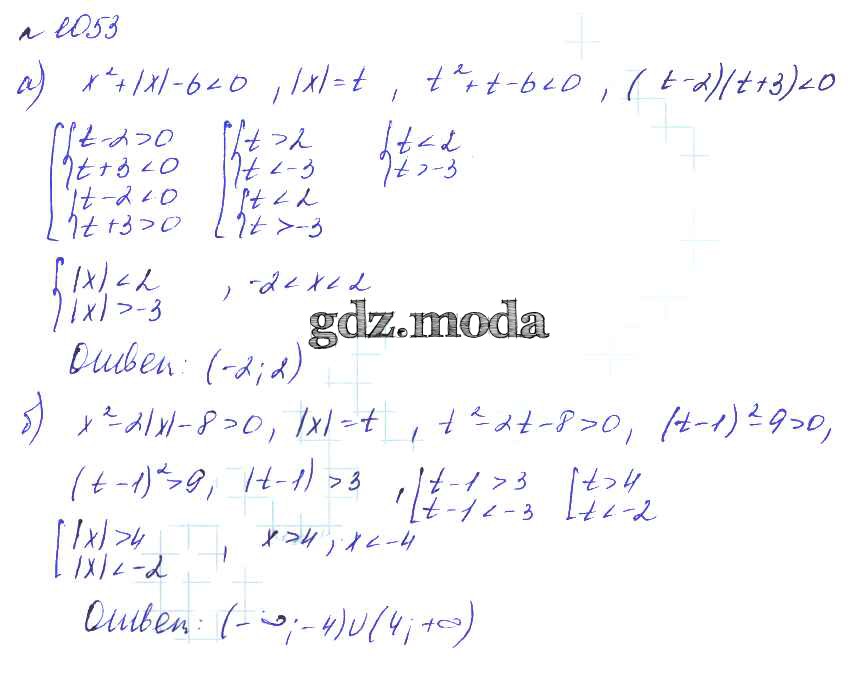 № 1053
а) x²+|x|-6<0 , |x|=t , t²+t-6<0 , (t-2)(t+3)<0
[ { t-2>0 [ { t>2 { t<2
t+3<0 t<-3 t>-3
{ t-2<0 { t<2
t+3>0 t>-3
{ |x|<2 , -2<x<2
|x|>-3
gdz.moda
Ответ: (-2; 2)
б) x²-2|x|-8>0, |x|=t , t²-2t-8>0, (t-1)²-9>0,
(t-1)²>9, |t-1|>3 , [ t-1>3 [ t>4
t-1<-3 t<-2
[ |x|>4 , x>4, x<-4
|x|<-2
Ответ: (-∞; -4)∪(4; +∞)